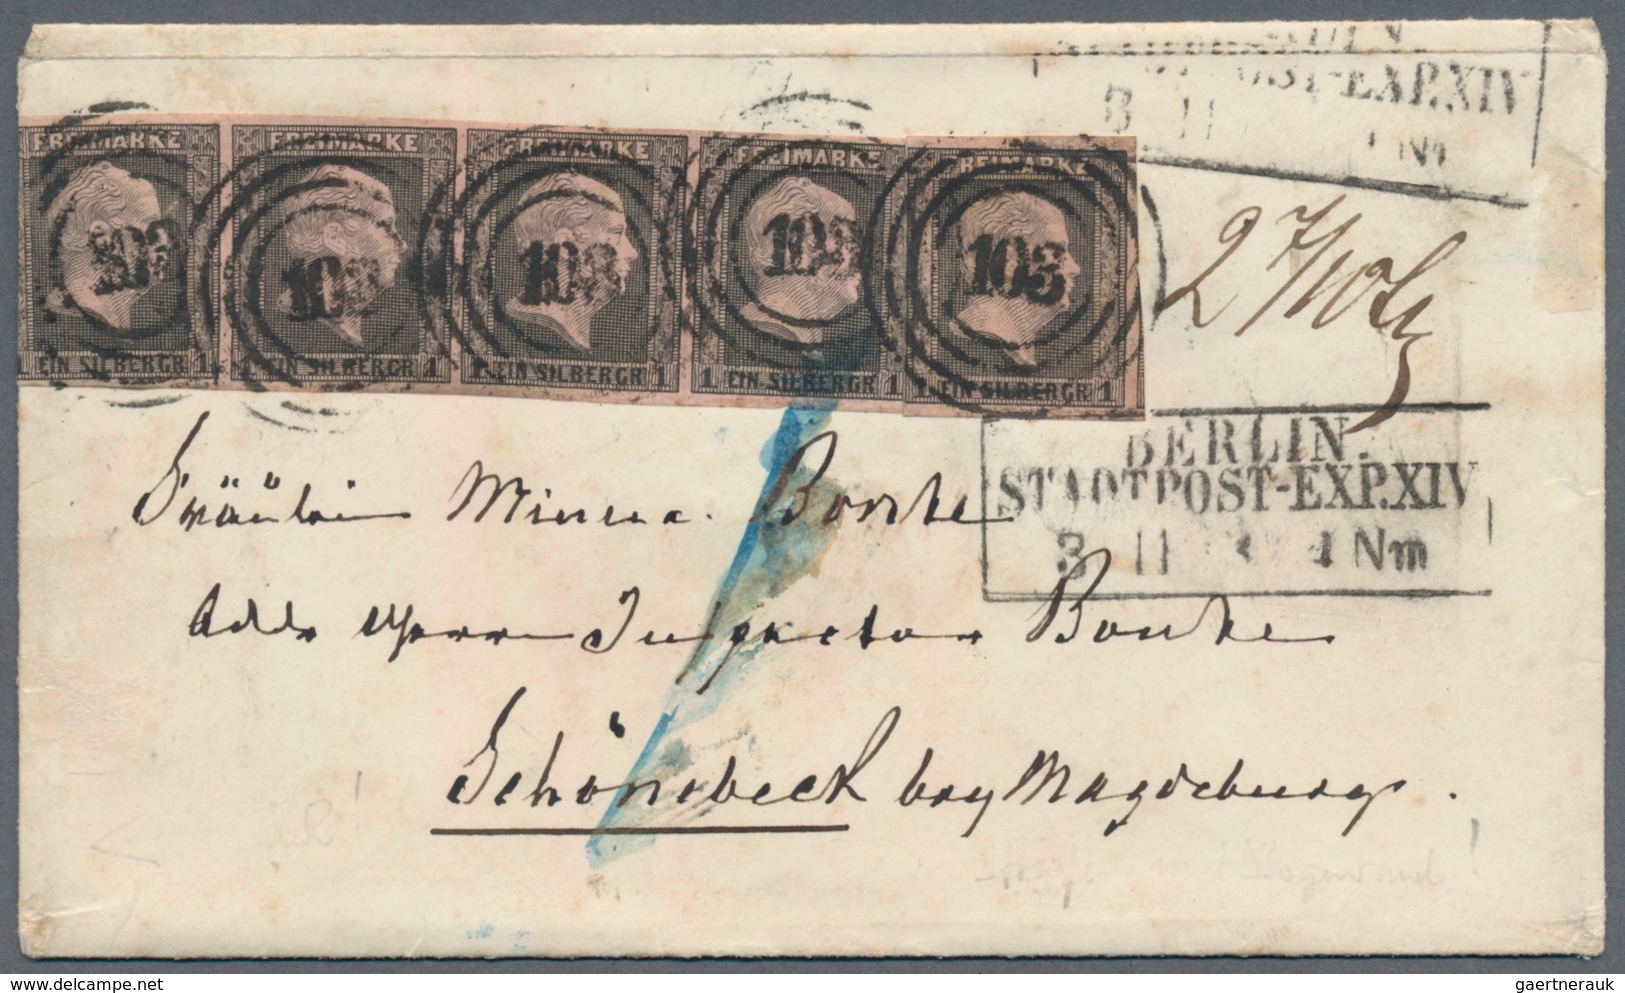 STADTPOST-EXP.XIV
3 11
Nm
FREIMARKE FREIMARKE FREIMARKE FREIMARKE FREIMARKE
103 103 103 103 103
EIN SILBERGR 1
1 EIN SILBERGR 1
1 EIN SILBERGR 1
1 EIN SILBERGR 1
1 EIN SILBERGR 1
BERLIN.
STADTPOST-EXP.XIV
3 11 4 Nm
Fräulein Minna Bonte
Adr Herrn Inspector Bonte
Schönebeck bey Magdeburg.
www.delcampe.net
gaertnerauk